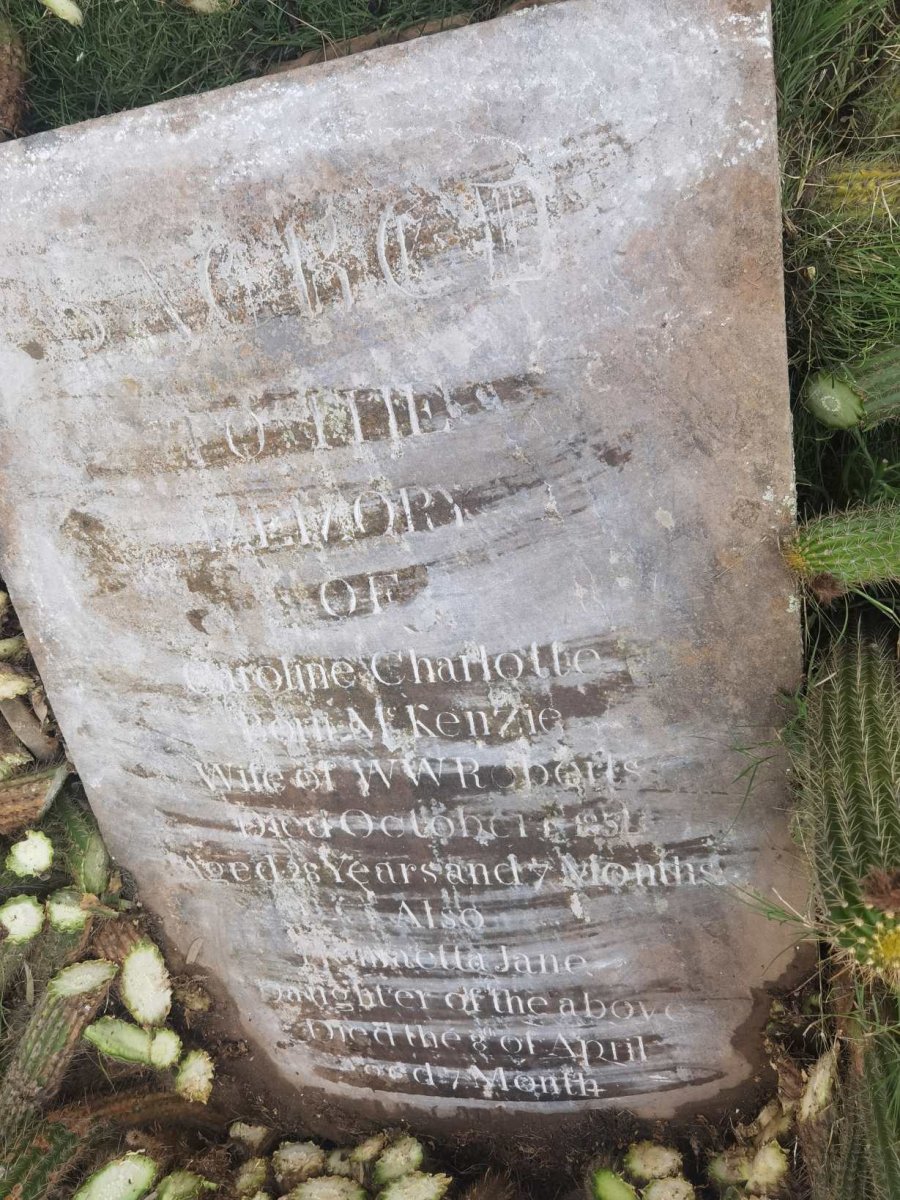 SACRED
TO THE
MEMORY
OF
Caroline Charlotte
Born McKenzie
Wife of W W Roberts
Died October
Aged 28 Years and 7 Months
Also
Jane
Daughter of the above
Died the 8 of April
Aged 7 Month